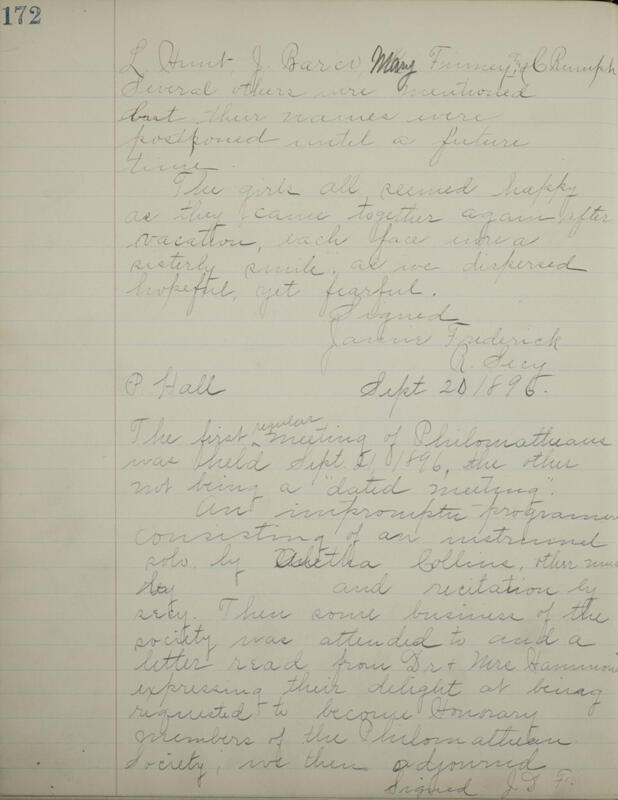 172
L. Hunt, J. Barco, Mary Finney, & C Rumph
Several others were mentioned
but their names were
postponed until a future
time.
The girls all seemed happy
as they came together again after
vacation, each face wore a
sisterly smile, as we dispersed
hopeful, yet fearful.
Signed
Jannie Frederick
R. Secy
P Hall Sept 20 1896.
The first regular meeting of Philomatheans
was held Sept. 21, 1896, the other
not being a "dated meeting".
An impromptu programe
consisting of an
solo by Aletha Collins, other
by and recitation by
secy. Then some business of the
society was attended to and a
letter read from Dr & Mrs Hammond
expressing their delight at being
requested to become Honorary
members of the Philomathean
Society, we then adjourned
Signed J